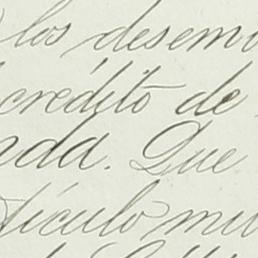 los desem
crédito de
nda. Que
tículo mil